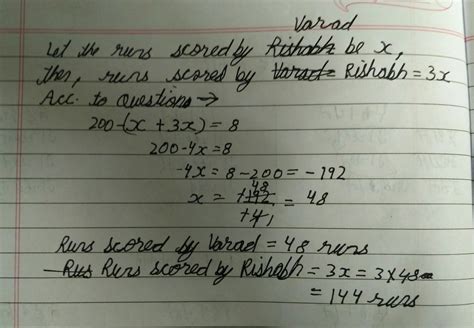 Varad
Let the runs scored by Rishabh be x,
then, runs scored by Varad Rishabh = 3x
Acc. to Question →
200-(x + 3x) = 8
200-4x = 8
-4x = 8-200 = -192
48
x = +192 = 48
+4
Runs scored by Varad = 48 runs
Rus Runs scored by Rishabh = 3x = 3x48
= 144 runs